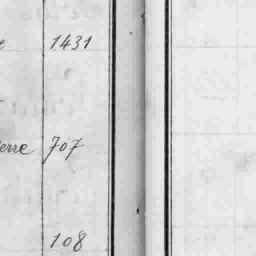 1431
erre 707
108